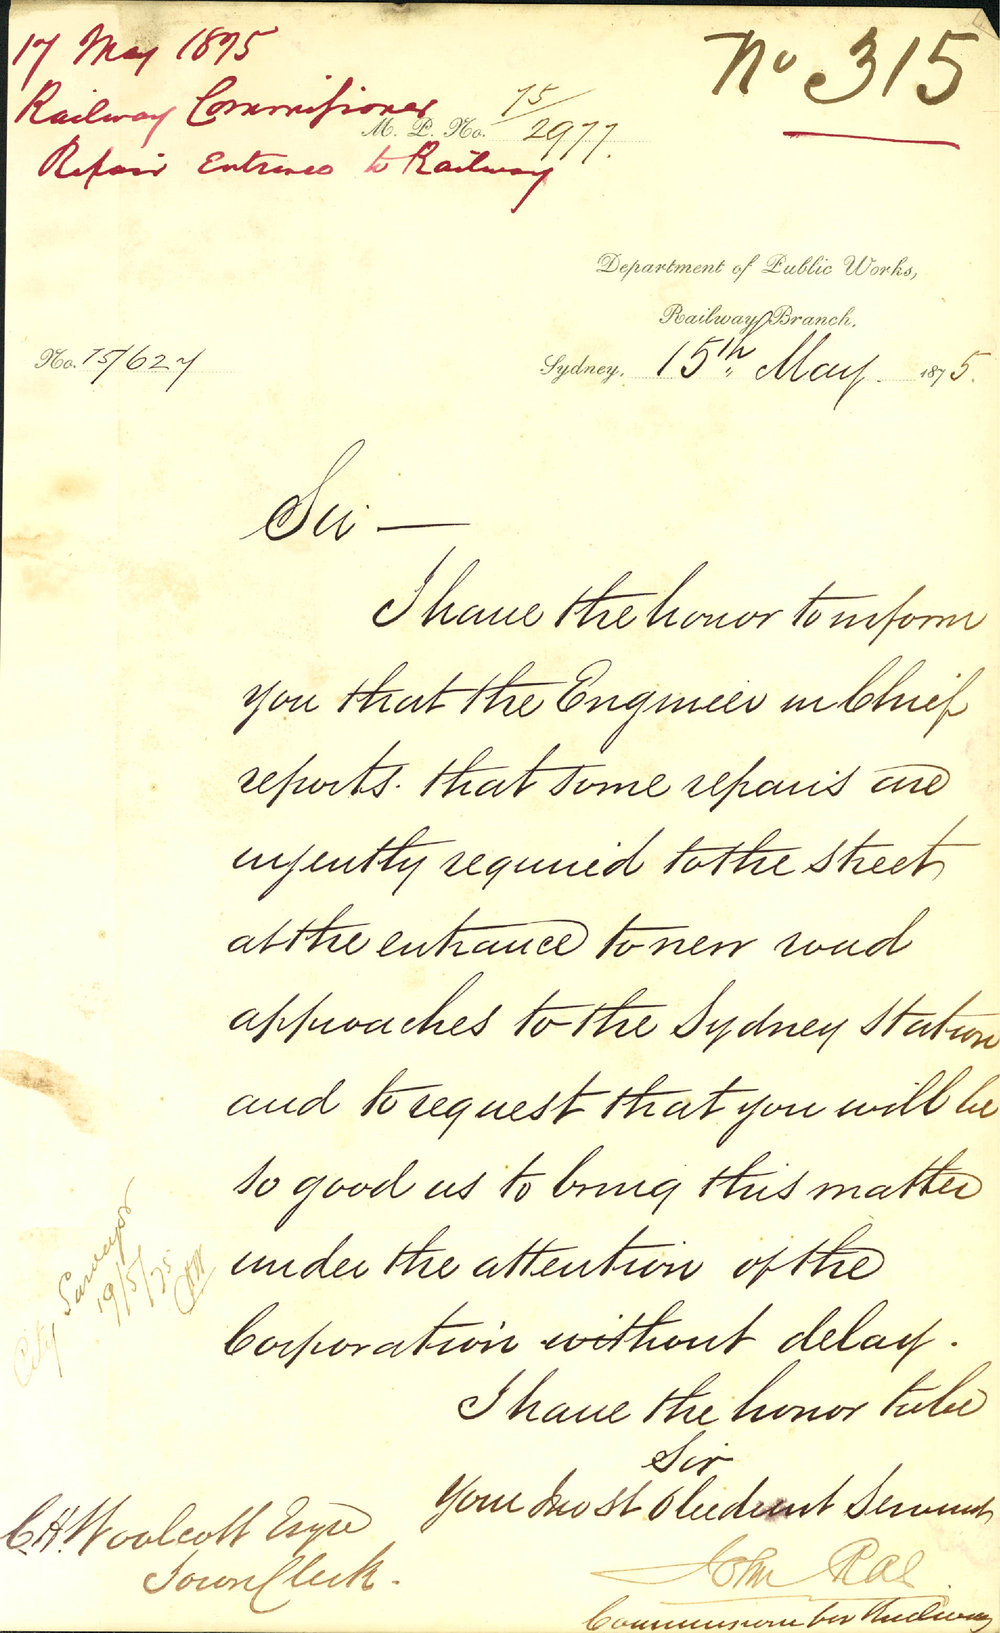 17 May 1875
No 315
Railway Commissioner
M. P. No. 75/2977.
Repair Entrance to Railway
Department of Public Works,
Railway Branch.
No. 75/627
Sydney, 15th May 1875.
Sir —
I have the honor to inform
you that the Engineer in Chief
reports that some repairs are
urgently required to the street
at the entrance to new road
approaches to the Sydney Station
and to request that you will be
so good as to bring this matter
under the attention of the
Corporation without delay.
I have the honor to be
Sir
Your Most Obedient Servant
John Rae
Commissioner for Railways
C.H. Woolcott Esqre
Town Clerk.
City Surveyor
19/5/75